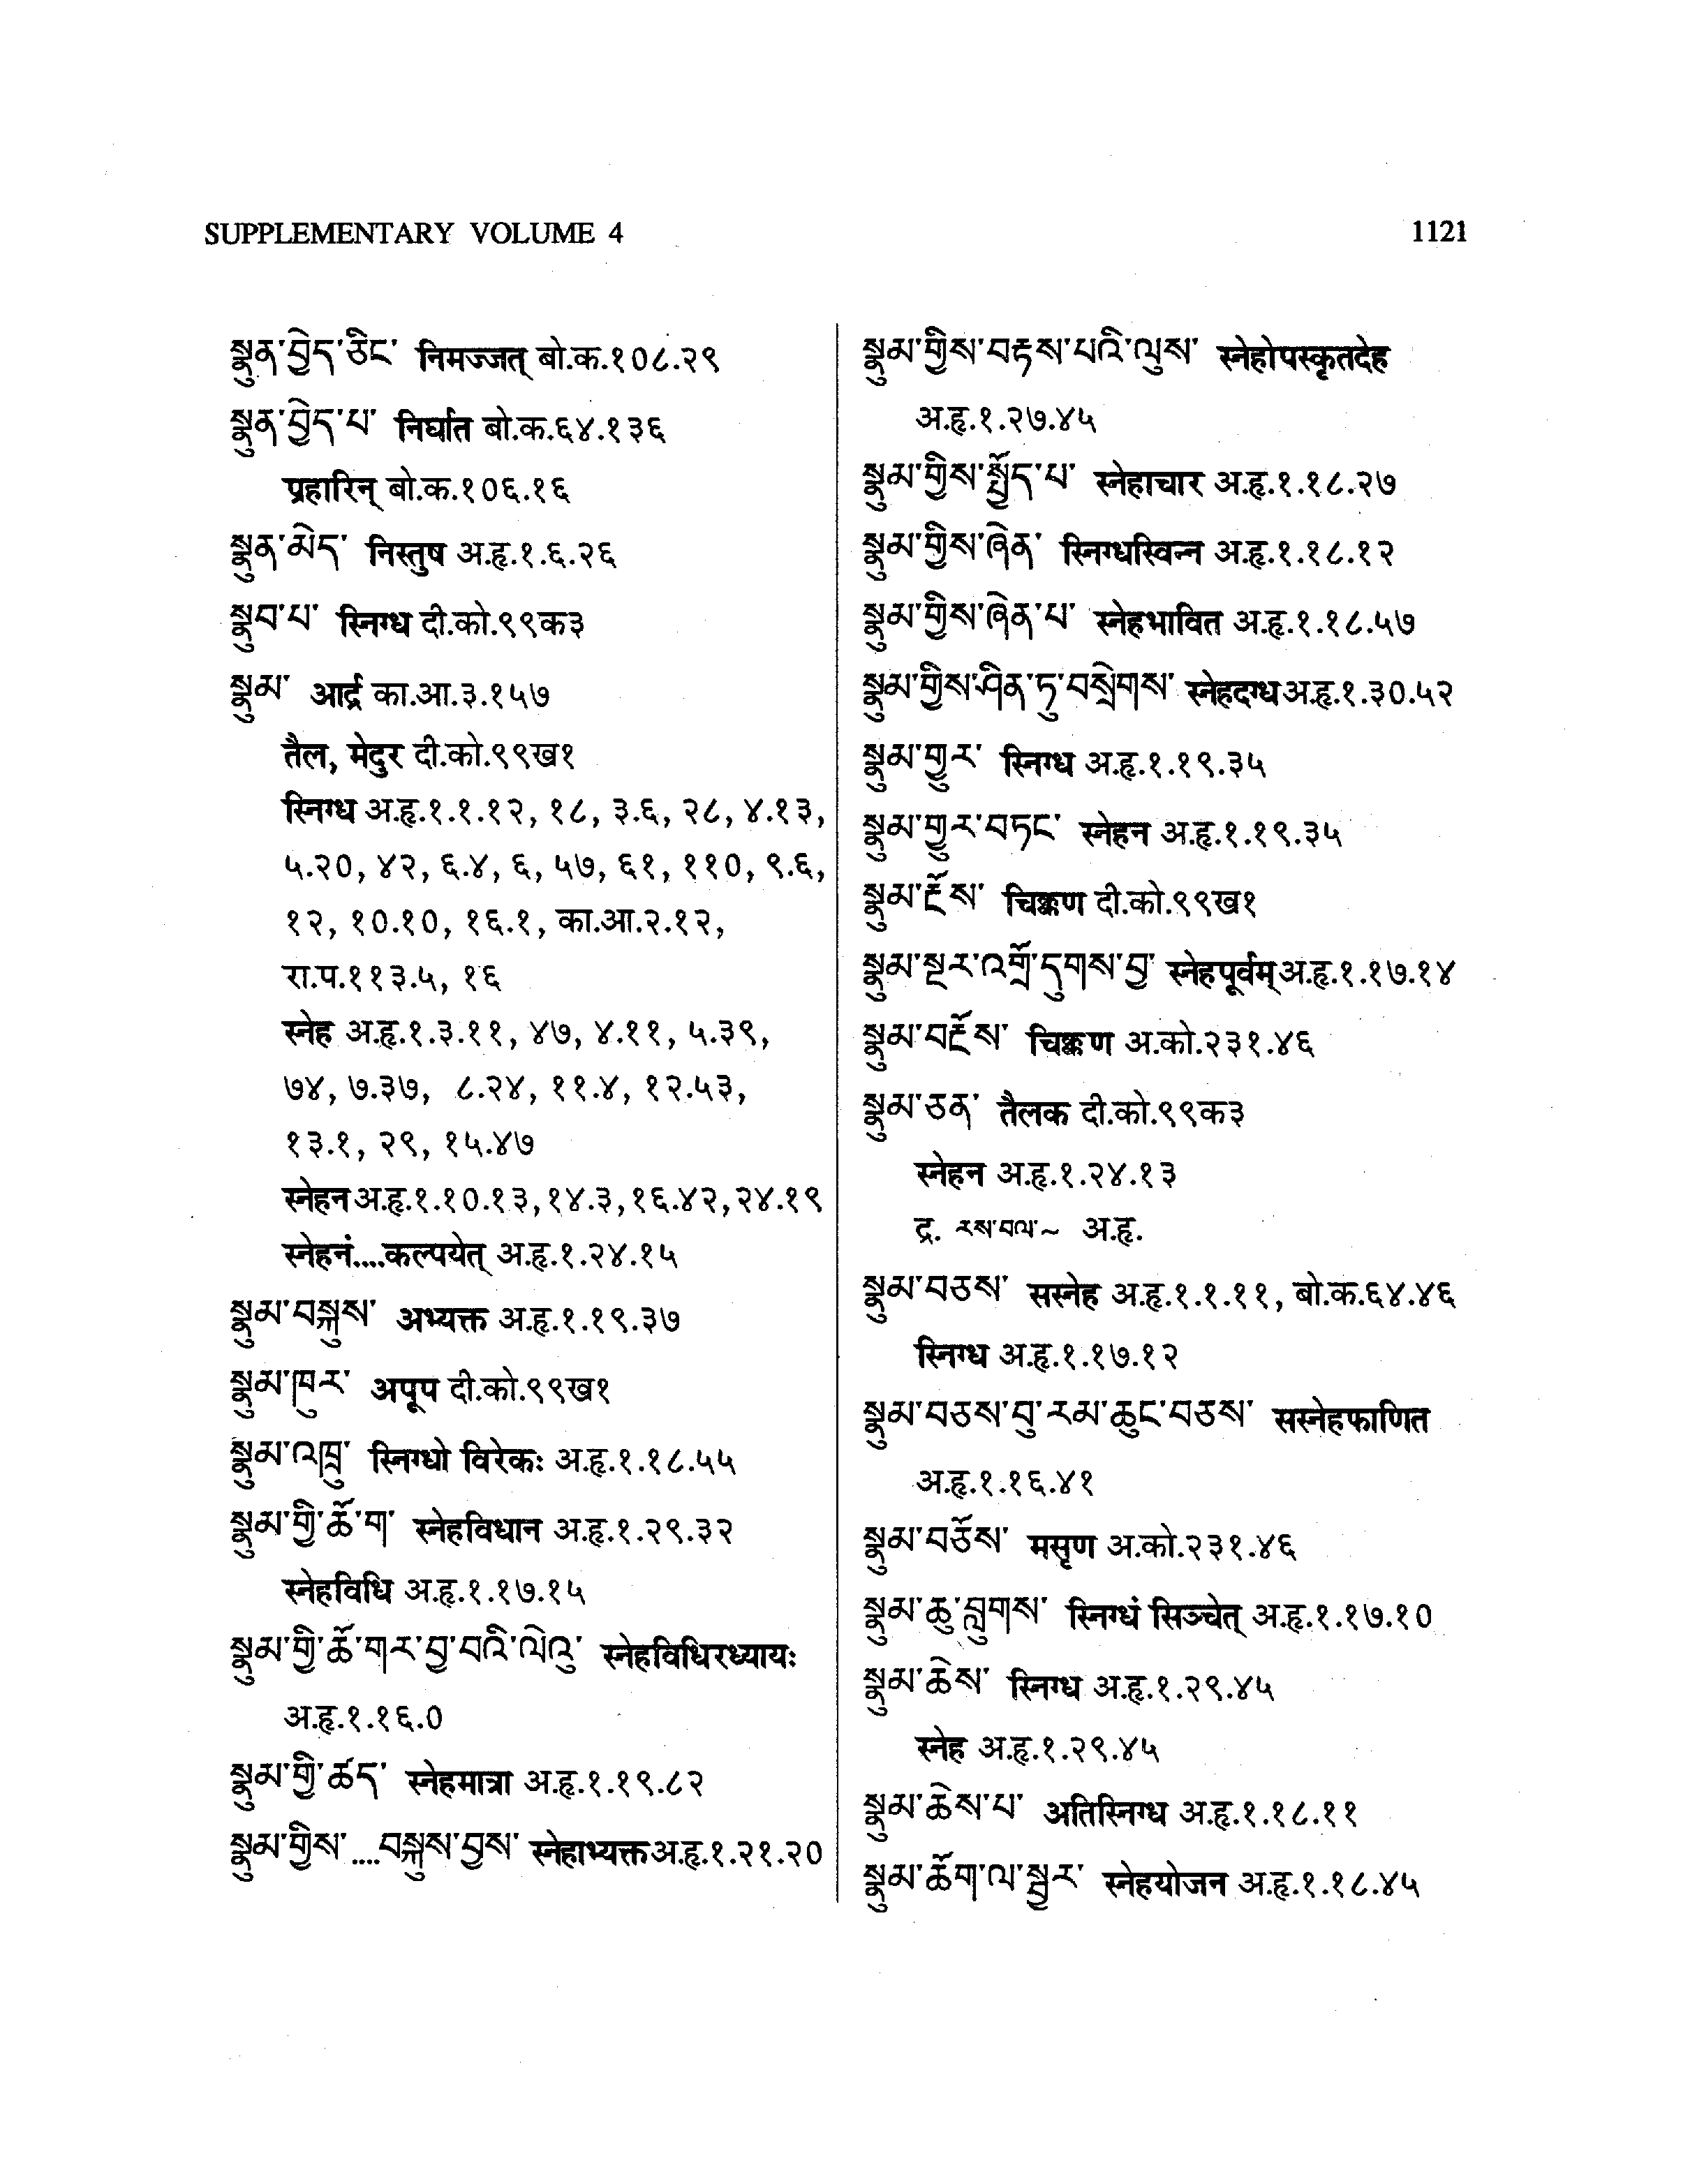 SUPPLEMENTARY VOLUME 4
1121
སྣུན་བྱེད་ཅིང་ निमज्जत् बो.क.१०८.२९
སྣུན་བྱེད་པ་ निर्घात बो.क.६४.१३६
प्रहारिन् बो.क.१०६.१६
སྣུན་མེད་ निस्तुष अ.हृ.१.६.२६
སྣུབ་པ་ स्निग्ध दी.को.९९क३
སྣུམ་ आर्द्र का.आ.३.१५७
तैल, मेदुर दी.को.९९ख१
स्निग्ध अ.हृ.१.१.१२, १८, ३.६, २८, ४.१३,
५.२०, ४२, ६.४, ६, ५७, ६१, ११०, ९.६,
१२, १०.१०, १६.१, का.आ.२.१२,
रा.प.११३.५, १६
स्नेह अ.हृ.१.३.११, ४७, ४.११, ५.३९,
७४, ७.३७, ८.२४, ११.४, १२.५३,
१३.१, २९, १५.४७
स्नेहन अ.हृ.१.१०.१३,१४.३,१६.४२,२४.१९
स्नेहनं....कल्पयेत् अ.हृ.१.२४.१५
སྣུམ་བསྐུས་ अभ्यक्त अ.हृ.१.१९.३७
སྣུམ་ཁུར་ अपूप दी.को.९९ख१
སྣུམ་འཁྲུ་ स्निग्धो विरेकः अ.हृ.१.१८.५५
སྣུམ་གྱི་ཆོ་ག་ स्नेहविधान अ.हृ.१.२९.३२
स्नेहविधि अ.हृ.१.१७.१५
སྣུམ་གྱི་ཆོ་གར་བྱ་བའི་ལེའུ་ स्नेहविधिरध्यायः
अ.हृ.१.१६.०
སྣུམ་གྱི་ཚད་ स्नेहमात्रा अ.हृ.१.१९.८२
སྣུམ་གྱིས་....བསྐུས་བྱས་ स्नेहाभ्यक्त अ.हृ.१.२१.२०
སྣུམ་གྱིས་བརྟས་པའི་ལུས་ स्नेहोपस्कृतदेह
अ.हृ.१.२७.४५
སྣུམ་གྱིས་སྤྱོད་པ་ स्नेहाचार अ.हृ.१.१८.२७
སྣུམ་གྱིས་ཞེན་ स्निग्धस्विन्न अ.हृ.१.१८.१२
སྣུམ་གྱིས་ཞེན་པ་ स्नेहभावित अ.हृ.१.१८.५७
སྣུམ་གྱིས་ཤིན་ཏུ་བསྲེགས་ स्नेहदग्ध अ.हृ.१.३०.५२
སྣུམ་གྱུར་ स्निग्ध अ.हृ.१.१९.३५
སྣུམ་གྱུར་བཏང་ स्नेहन अ.हृ.१.१९.३५
སྣུམ་ངོས་ चिक्कण दी.को.९९ख१
སྣུམ་སྔར་འགྲོ་དུགས་བྱ་ स्नेहपूर्वम् अ.हृ.१.१७.१४
སྣུམ་བངོས་ चिक्कण अ.को.२३१.४६
སྣུམ་ཅན་ तैलक दी.को.९९क३
स्नेहन अ.हृ.१.२४.१३
द्र. རས་བལ་~ अ.हृ.
སྣུམ་བཅས་ सस्नेह अ.हृ.१.१.११, बो.क.६४.४६
स्निग्ध अ.हृ.१.१७.१२
སྣུམ་བཅས་བུ་རམ་ཆུང་བཅས་ सस्नेहफाणित
अ.हृ.१.१६.४१
སྣུམ་བཅོས་ मसृण अ.को.२३१.४६
སྣུམ་ཆུ་བླུགས་ स्निग्धं सिञ्चेत् अ.हृ.१.१७.१०
སྣུམ་ཆེས་ स्निग्ध अ.हृ.१.२९.४५
स्नेह अ.हृ.१.२९.४५
སྣུམ་ཆེས་པ་ अतिस्निग्ध अ.हृ.१.१८.११
སྣུམ་ཆོག་ལ་སྦྱར་ स्नेहयोजन अ.हृ.१.१८.४५